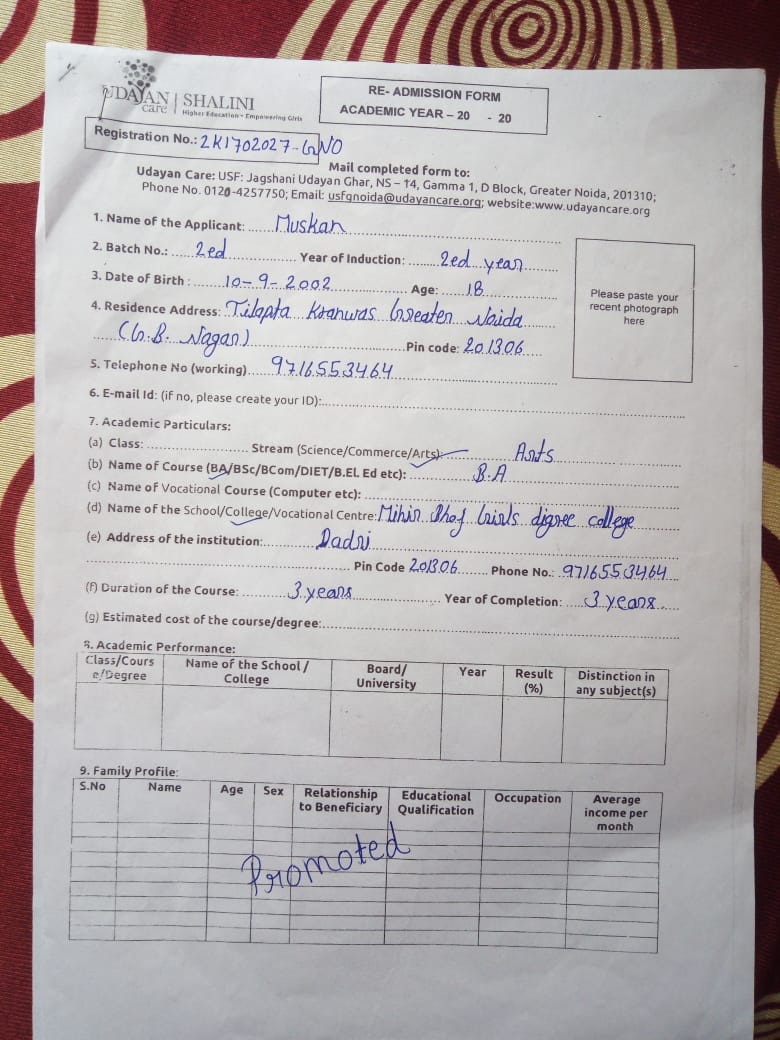 UDAYAN care | SHALINI
Higher Education • Empowering Girls
RE- ADMISSION FORM
ACADEMIC YEAR – 20 - 20
Registration No.: 2K1702027-GNO
Mail completed form to:
Udayan Care: USF: Jagshani Udayan Ghar, NS – 14, Gamma 1, D Block, Greater Noida, 201310;
Phone No. 0120-4257750; Email: usfgnoida@udayancare.org; website:www.udayancare.org
1. Name of the Applicant: Muskan
2. Batch No.: 2ed Year of Induction: 2ed year
3. Date of Birth : 10-9-2002 Age: 18
4. Residence Address: Tilapta Karanwas Greater Noida
(G.B. Nagar) Pin code: 201306
Please paste your
recent photograph
here
5. Telephone No (working) 9716553464
6. E-mail Id: (if no, please create your ID):
7. Academic Particulars:
(a) Class: Stream (Science/Commerce/Arts): Arts
(b) Name of Course (BA/BSc/BCom/DIET/B.El. Ed etc): B.A
(c) Name of Vocational Course (Computer etc):
(d) Name of the School/College/Vocational Centre: Mihir Bhoj Girls digree college
(e) Address of the institution: Dadri
Pin Code 201306 Phone No.: 9716553464
(f) Duration of the Course: 3 years Year of Completion: 3 years
(g) Estimated cost of the course/degree:
8. Academic Performance:
Class/Course/Degree Name of the School / College Board/ University Year Result (%) Distinction in any subject(s)
9. Family Profile:
S.No Name Age Sex Relationship to Beneficiary Educational Qualification Occupation Average income per month
Promoted